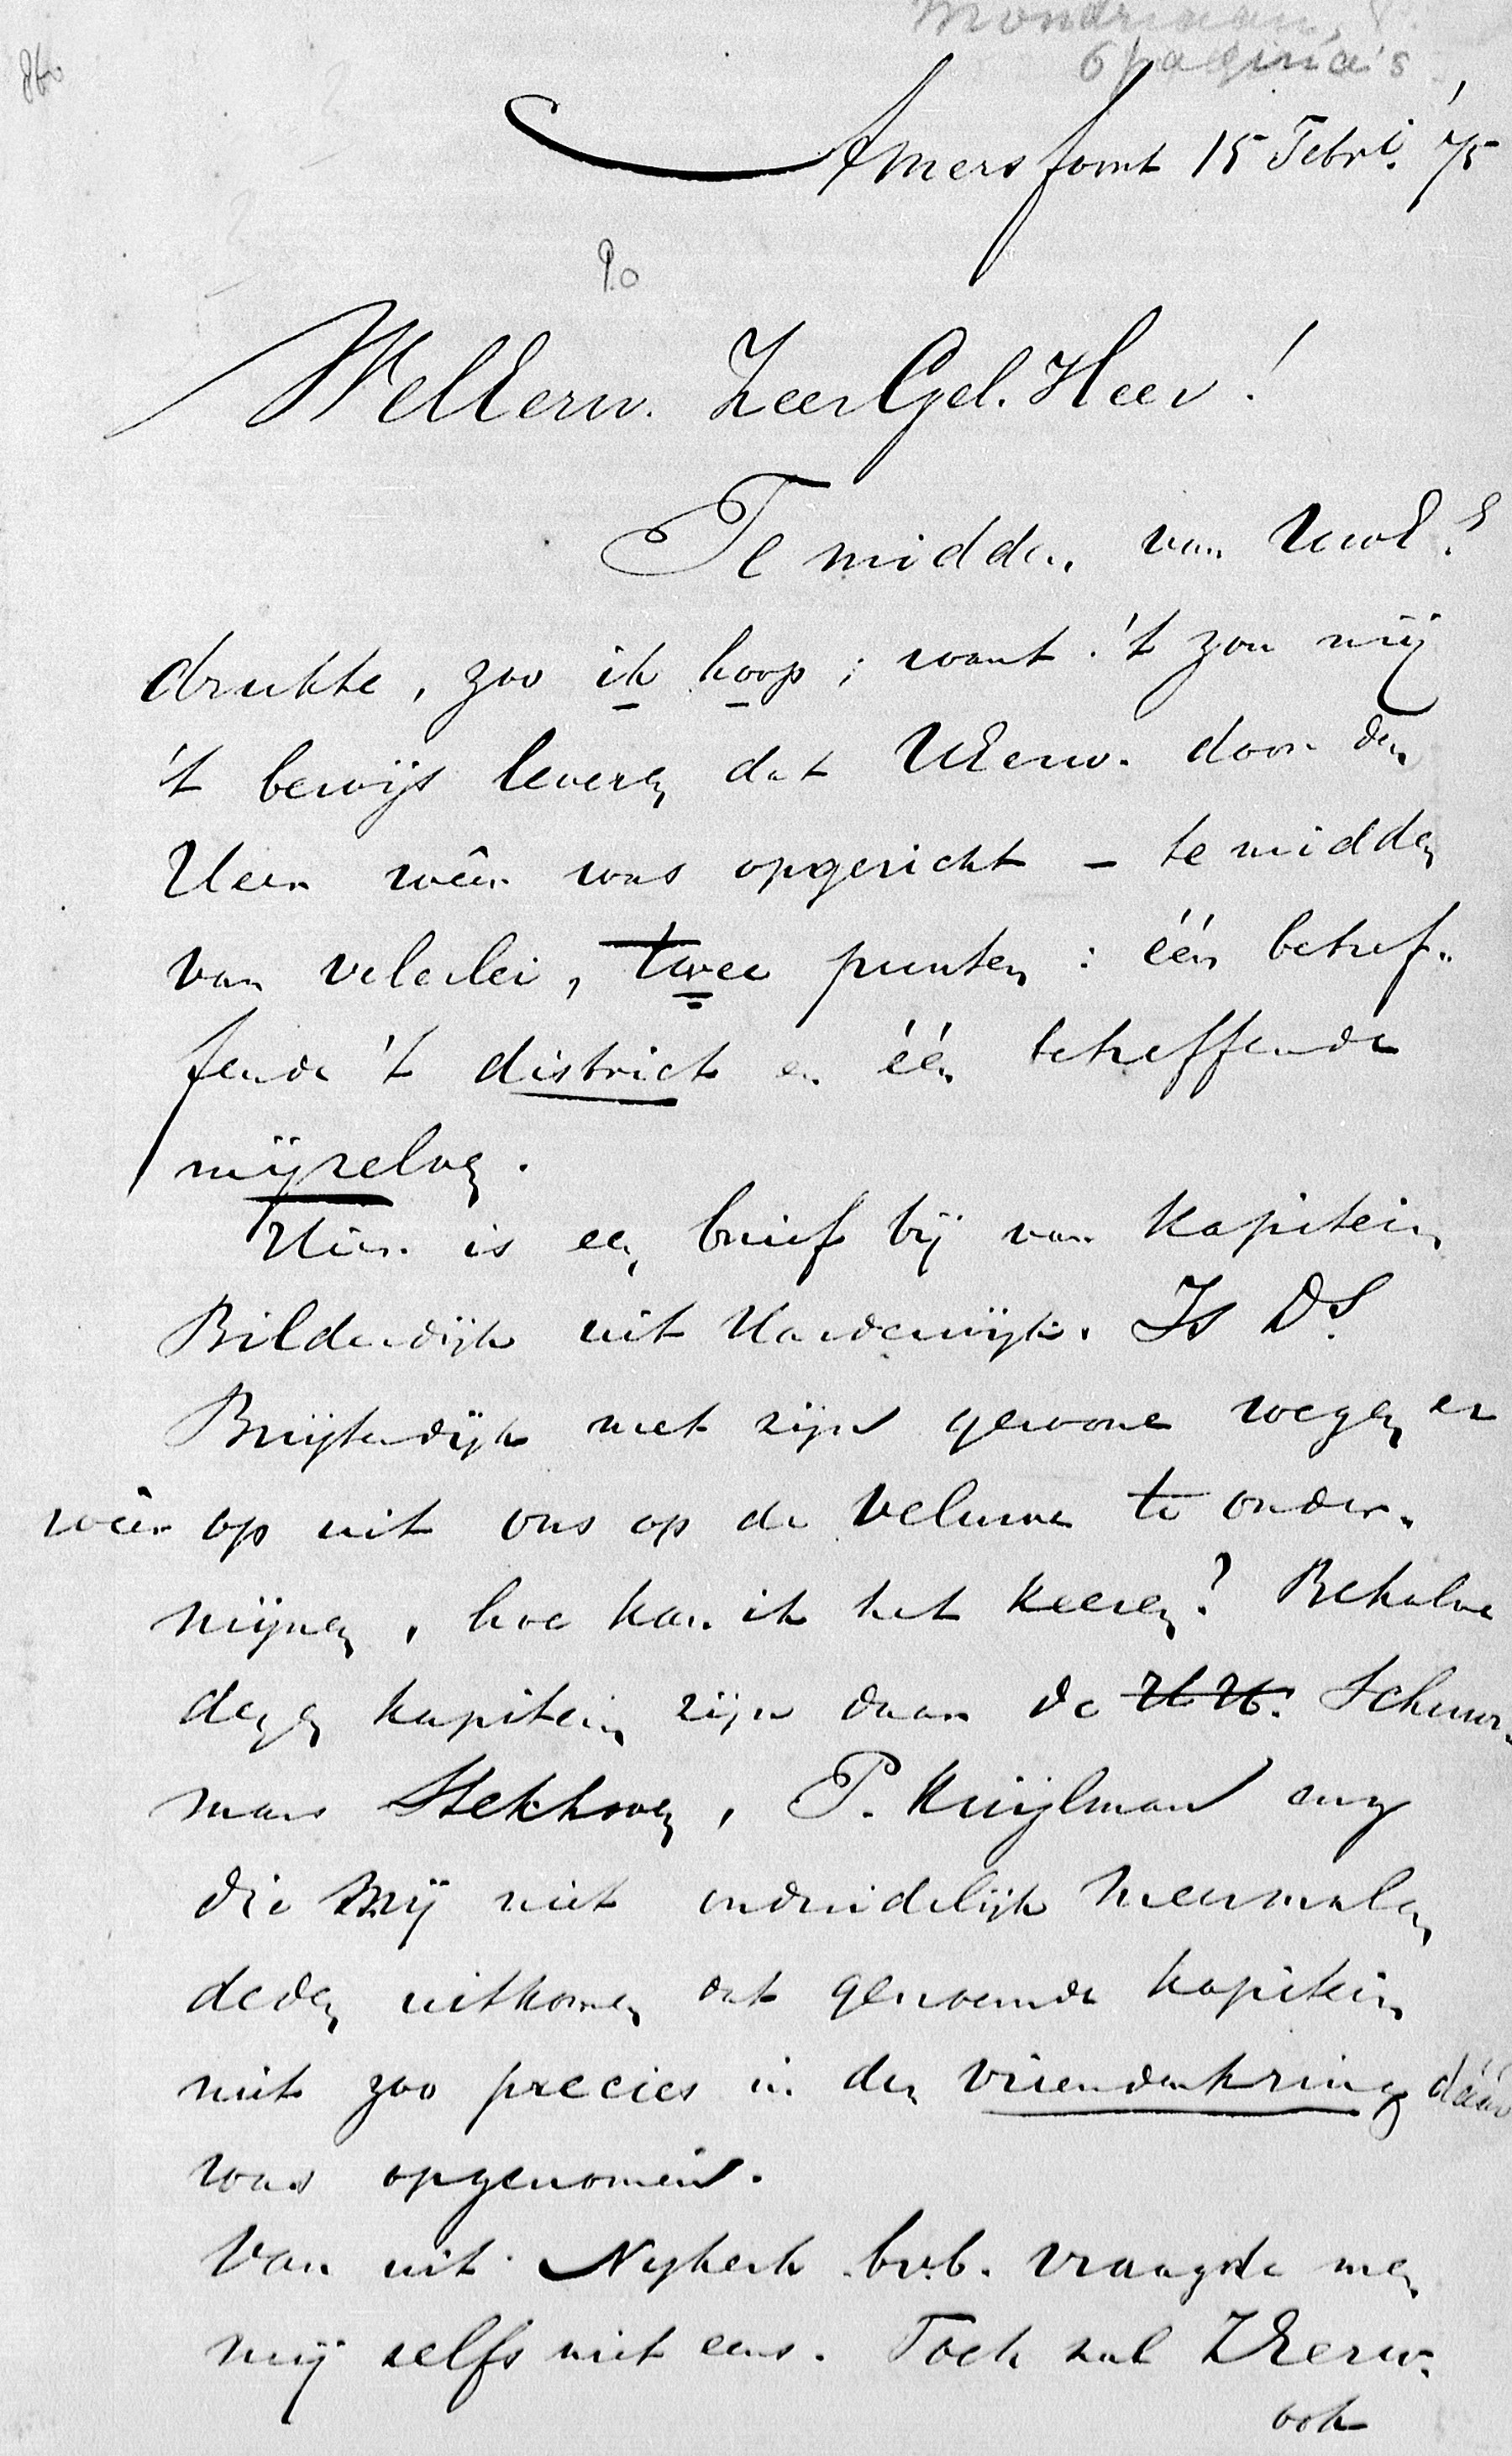 Mondriaan, P.
6 pagina's
Amersfoort 15 Febri. '75
WelEerw. ZeerGel. Heer!
Te midden van UwE.s
drukte, zoo ik hoop; want 't zou mij
't bewijs leveren dat UEerw. door den
Heer weêr was opgericht – te midden
van velerlei, twee punten: één betref-
fende 't district en één betreffende
mijzelven.
Hier is een brief bij van Kapitein
Bilderdijk uit Harderwijk. Is Ds.
Bruijtendijk met zijn gewone wegen er
weêr op uit ons op de Veluwe te onder-
mijnen, hoe kan ik het keeren? Behalve
dezen kapitein zijn daar de HH. Schuur-
mans Stekhoven, P. Kuijlman enz
die mij niet onduidelijk meermalen
deden uitkomen dat genoemde kapitein
niet zoo precies in den vriendenkring dáár
was opgenomen.
Van uit Nykerk bvb. vraagde men
mij zelfs niet eens. Toch zal ZEerw.
ook